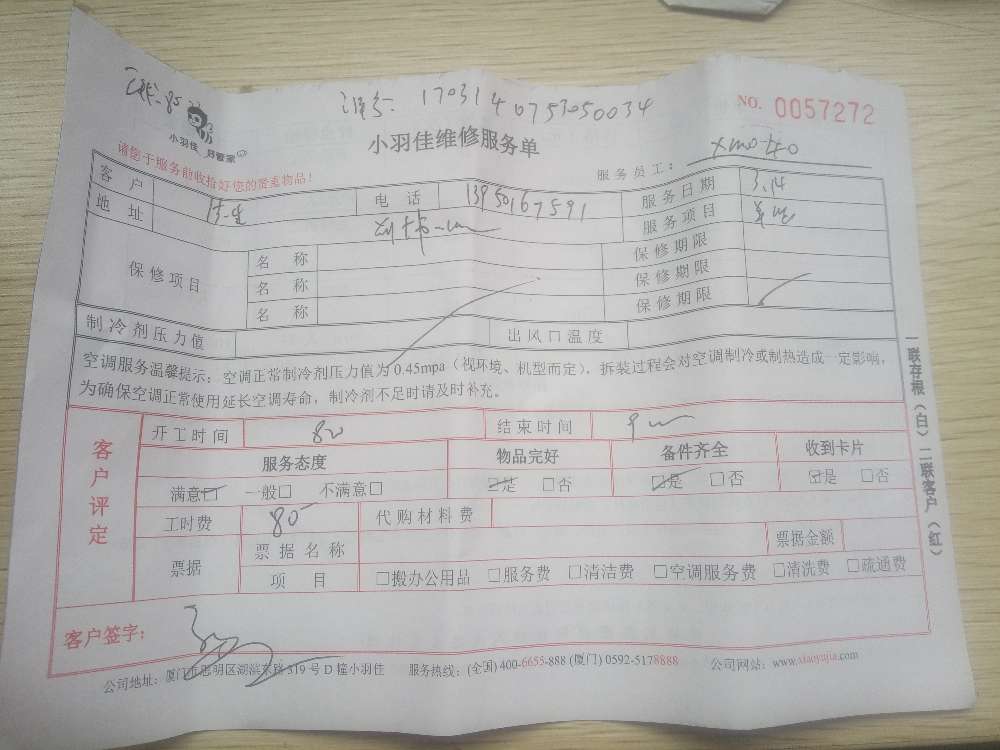 1703140753050034
NO. 0057272
小羽佳 好管家
小羽佳维修服务单
请您于服务前收拾好您的贵重物品!
服务员工:
客户 电话 13950167591 服务日期 3.14
地址 服务项目
保修项目 名称 保修期限
名称 保修期限
名称 保修期限
制冷剂压力值 出风口温度
空调服务温馨提示:空调正常制冷剂压力值为0.45mpa(视环境、机型而定),拆装过程会对空调制冷或制热造成一定影响,
为确保空调正常使用延长空调寿命,制冷剂不足时请及时补充。
一联存根(白)二联客户(红)
客户评定
开工时间 结束时间
服务态度 物品完好 备件齐全 收到卡片
满意□ 一般□ 不满意□ □是 □否 □是 □否 □是 □否
工时费 80 代购材料费
票据 票据名称 票据金额
项目 □搬办公用品 □服务费 □清洁费 □空调服务费 □清洗费 □疏通费
客户签字:
公司地址:厦门市思明区湖滨东路319号D幢小羽佳 服务热线:(全国)400-6655-888 (厦门) 0592-5178888 公司网站:www.xiaoyujia.com